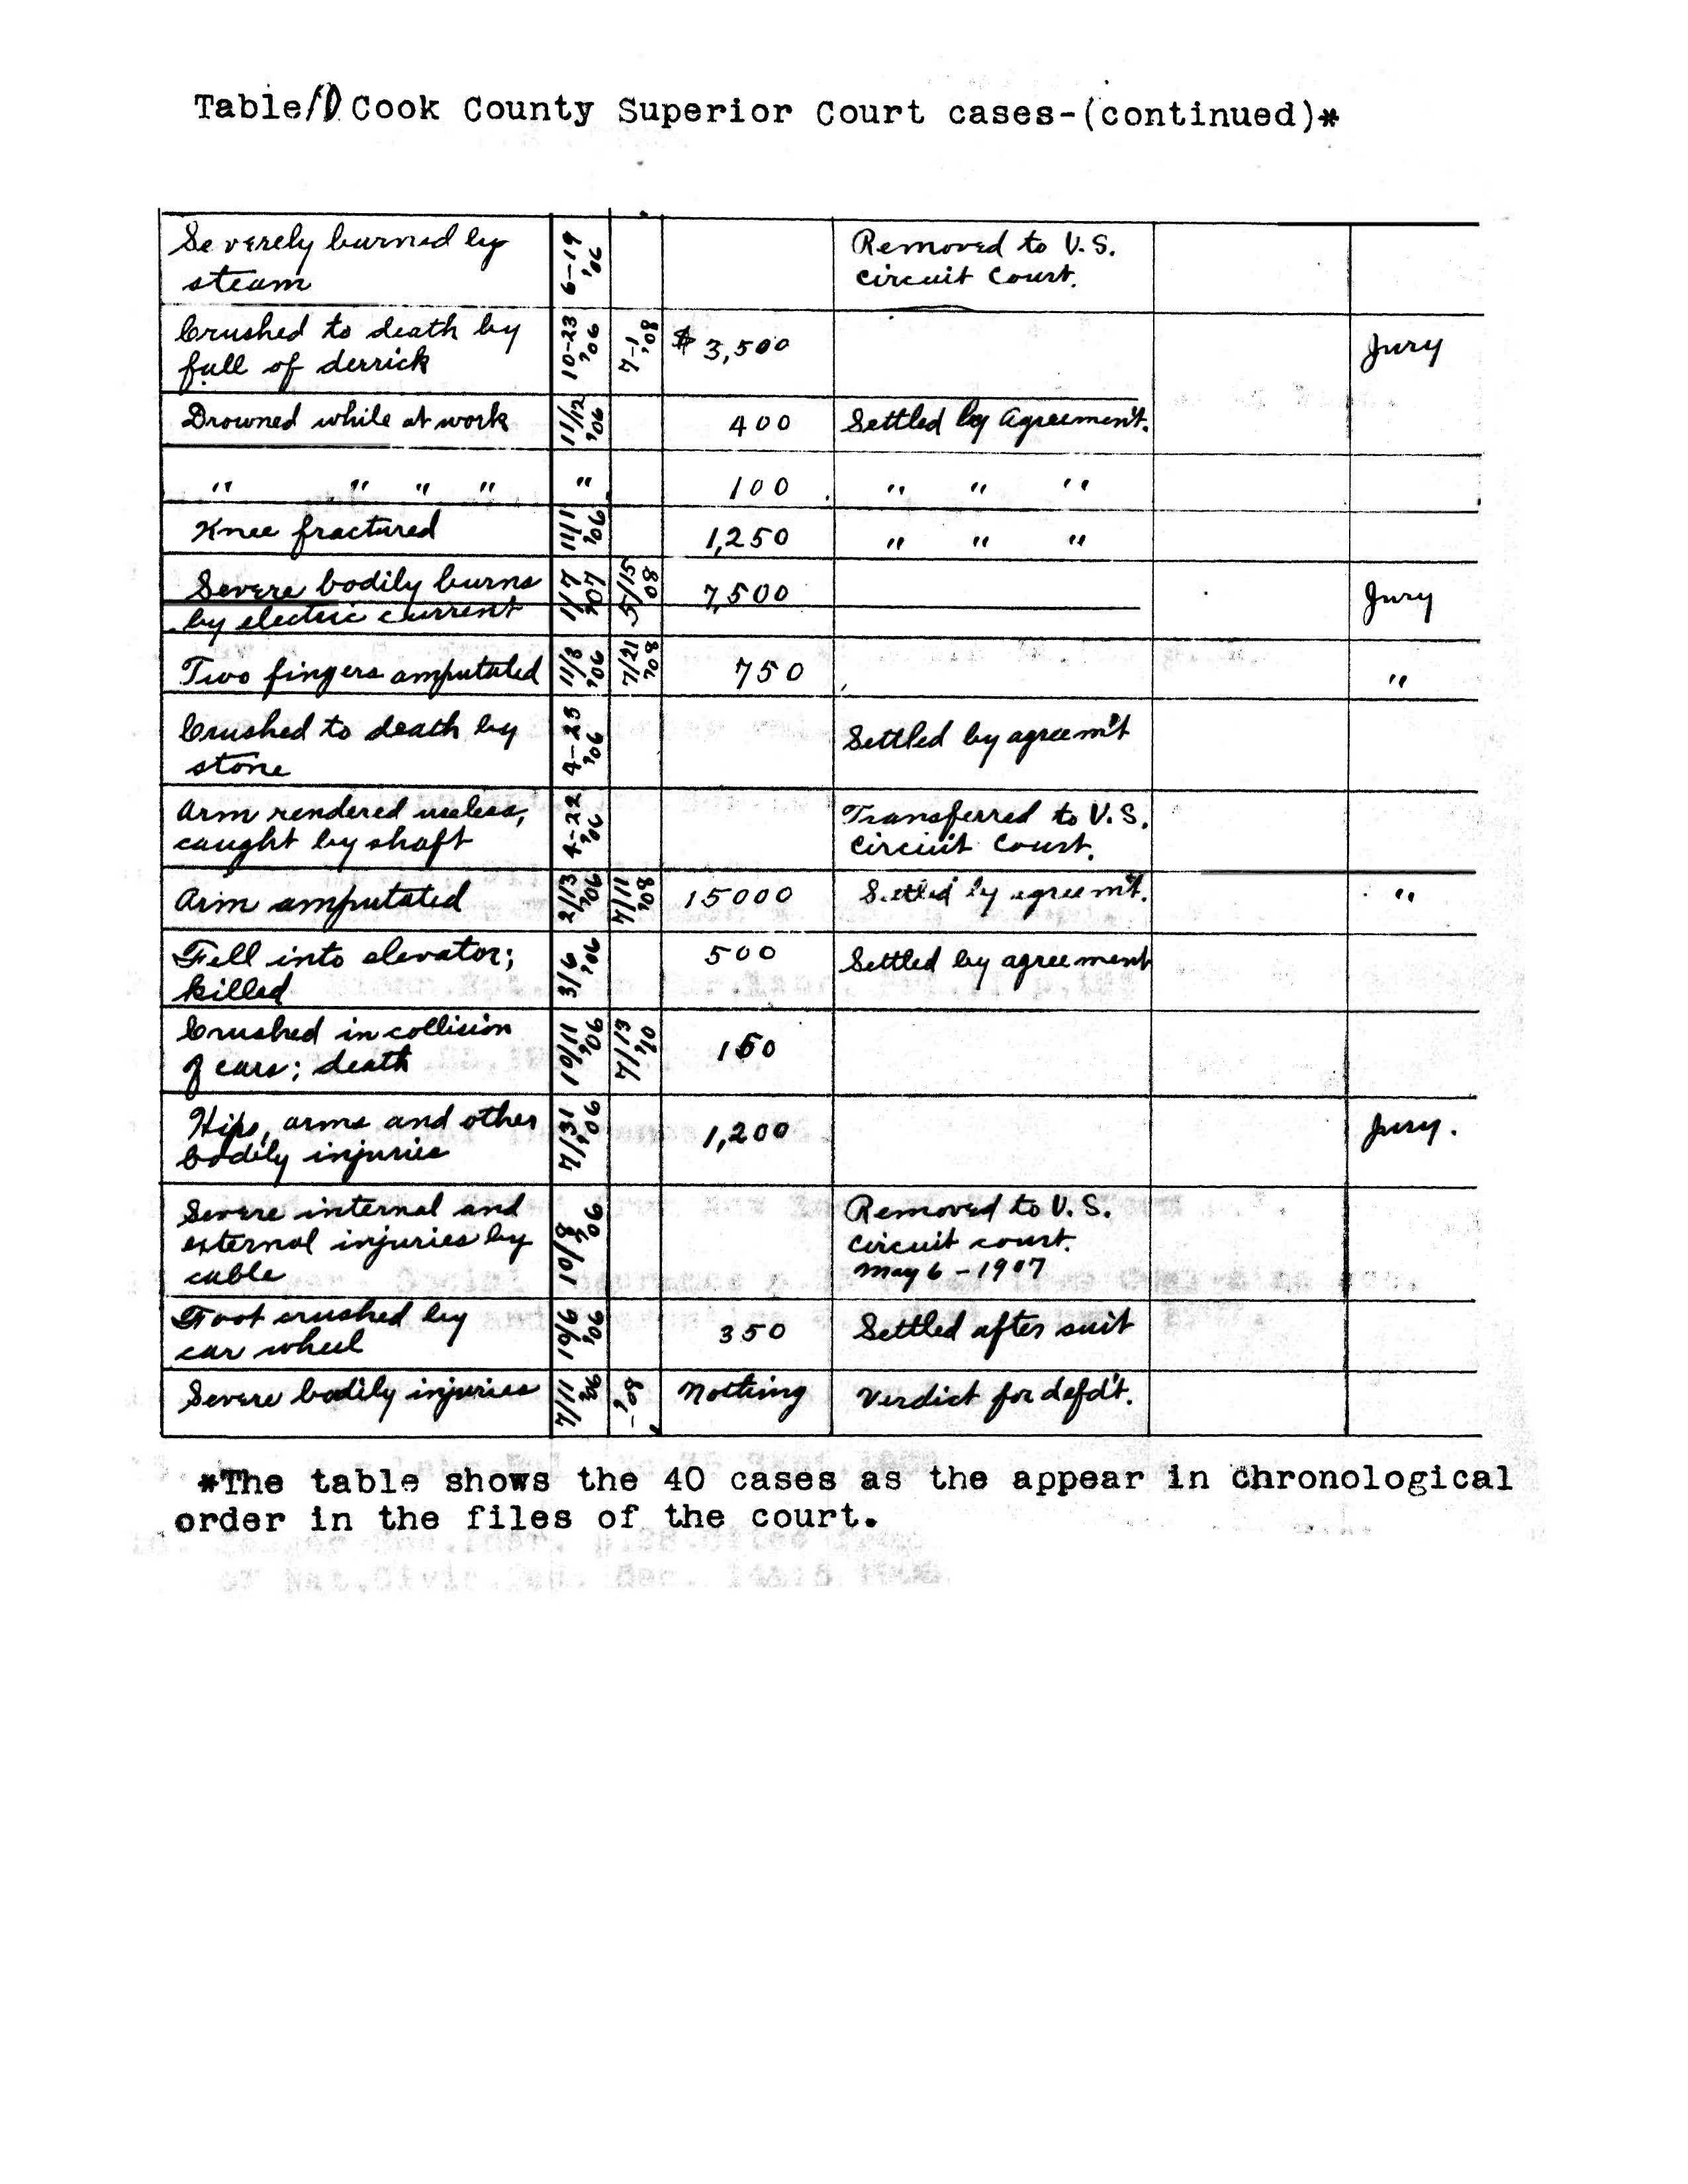 Table D Cook County Superior Court cases-(continued)*
Severely burned by
steam
6-19
'06
Removed to U.S.
Circuit Court.
Crushed to death by
fall of derrick
10-23
'06
7-1
'08
$ 3,500
Jury
Drowned while at work
11/12
'06
400
Settled by Agreemen't.
" " " "
"
100
" " "
Knee fractured
11/1
'06
1,250
" " "
Severe bodily burns
by electric current
1/17
'07
5/15
08
7,500
Jury
Two fingers amputated
11/8
'06
7/21
'08
750
"
Crushed to death by
stone
4-25
'06
Settled by agreem't
Arm rendered useless,
caught by shaft
4-22
'06
Transferred to U.S.
Circuit Court.
Arm amputated
2/13
'06
7/11
'08
15000
Settled by agreem't.
"
Fell into elevator;
killed
3/6
'06
500
Settled by agreement
Crushed in collision
of cars; death
10/11
'06
7/13
'10
150
Hips, arms and other
bodily injuries
7/31
'06
1,200
Jury.
Severe internal and
external injuries by
cable
10/8
'06
Removed to U.S.
Circuit court.
May 6 - 1907
Foot crushed by
car wheel
10/6
'06
350
Settled after suit
Severe bodily injuries
7/11
'06
-'08
Nothing
Verdict for defd't.
*The table shows the 40 cases as the appear in chronological
order in the files of the court.